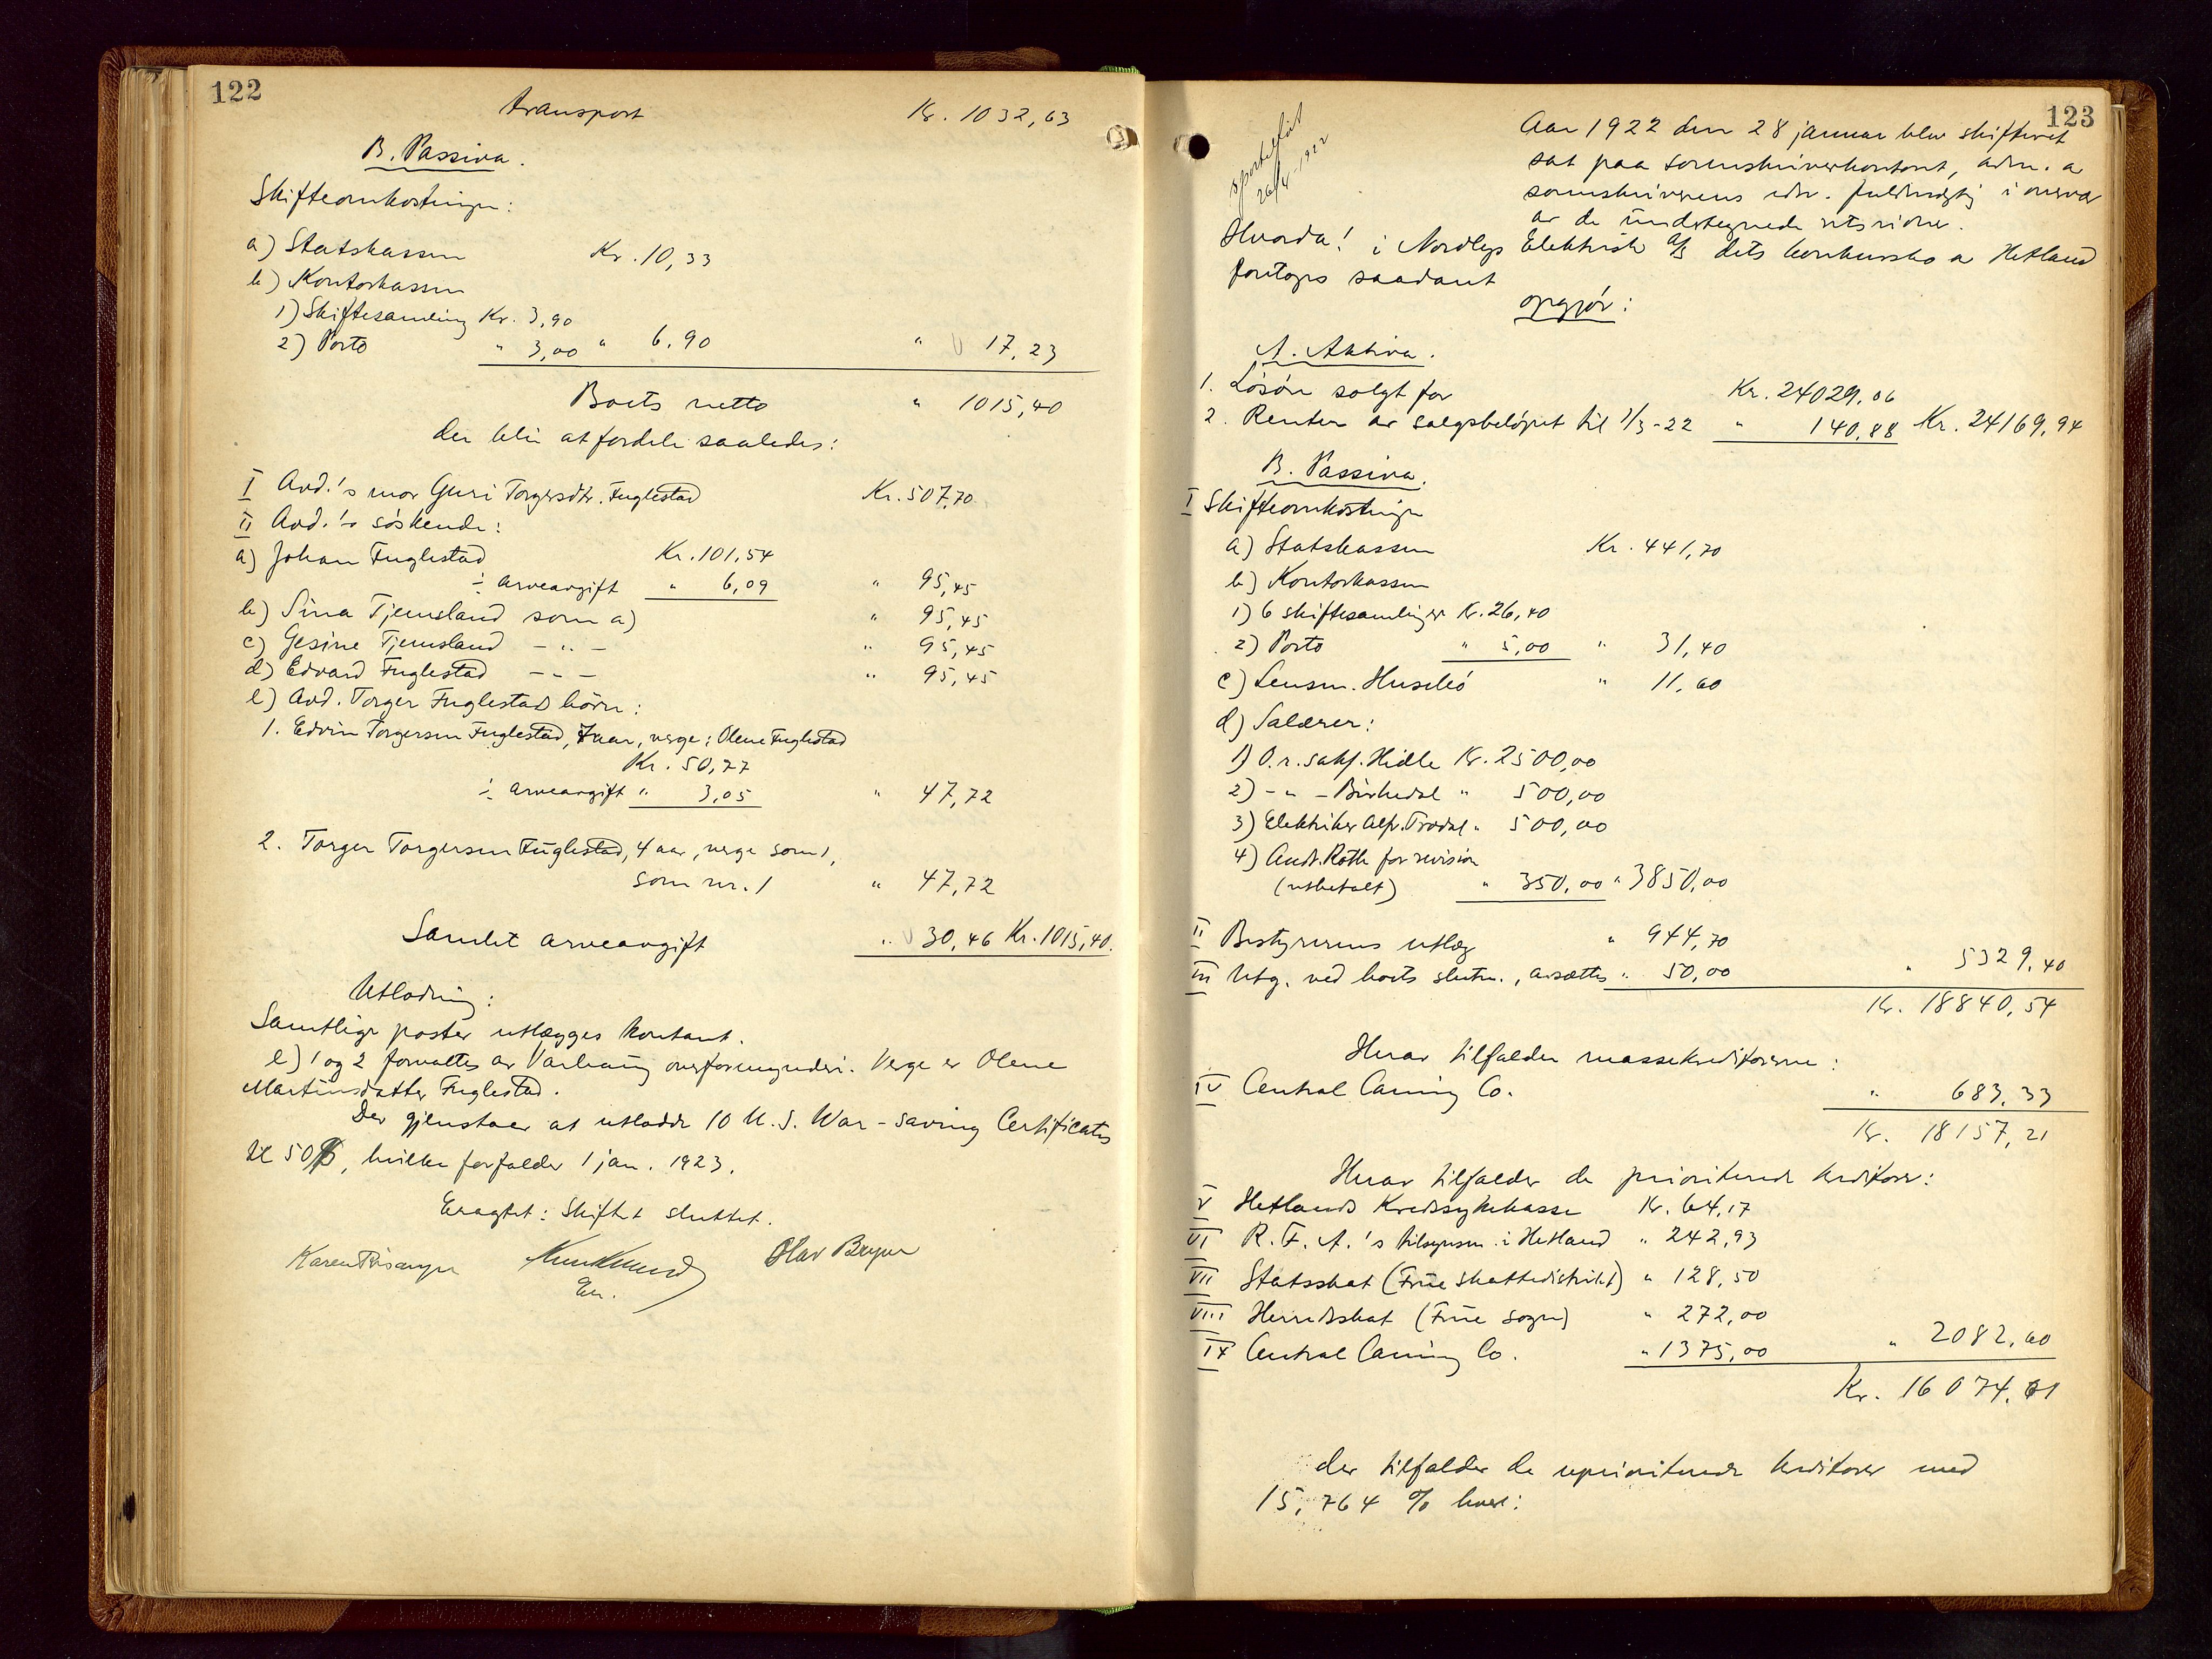 122
transport Kr. 1032,63
B. Passiva.
Skifteomkostninger:
a) Statskassen Kr. 10,33
b) Kontorkassen
1) Skiftesamling Kr. 3,90
2) Porto " 3,00 " 6.90 " 17,23
Boets netto " 1015,40
der blir at fordele saaledes:
I Avd.'s mor Guri Torgersdtr. Fuglestad Kr. 507,70
II Avd.'s søskende:
a) Johan Fuglestad Kr. 101,54
÷ arveavgift " 6,09 " 95,45
b) Sina Tjemsland som a) " 95,45
c) Gesine Tjemsland - " - " 95,45
d) Edvard Fuglestad - " - " 95,45
e) Avd. Torger Fuglestads børn:
1. Edvin Torgersen Fuglestad, 7 aar, verge: Olene Fuglestad
Kr. 50,77
÷ arveavgift " 3,05 " 47,72
2. Torger Torgersen Fuglestad, 4 aar, verge som 1,
som nr. 1 " 47,72
Samlet arveavgift " 30,46 Kr. 1015,40.
Utlodning:
Samtlige poster utlægges kontant.
e) 1 og 2 forvaltes av Varhaug overformynderi. Verge er Olene
Martinsdatter Fuglestad.
Der gjenstaar at utlodde 10 U.S. War-Saving Certificates
til 50 $, hvilke forfalder 1 jan. 1923.
Eragtet: Skiftet sluttet.
Olav Bryne
123
26/4-1922
Aar 1922 den 28 januar blev skifteret
sat paa sorenskriverkontoret, adm. a
sorenskriverens edsv. fuldmægtig i overvær
av de undertegnede retsvidne.
Hvorda! i Nordlys Elektrisk A/S dets konkursbo a Hetland
foretoges saadant
opgjør:
A. Aktiva.
1. Løsøre solgt for Kr. 24029,06
2. Renter av salgsbeløpet til 1/3-22 " 140,88 Kr. 24169,94
B. Passiva.
I Skifteomkostninger
a) Statskassen Kr. 441,70
b) Kontorkassen
1) 6 skiftesamlinger Kr. 26,40
2) Porto " 5,00 " 31,40
c) Lensm. Husebø " 11,60
d) Salærer:
1) O.r.sakf. Hidle Kr. 2500,00
2) - " - Birkedal " 500,00
3) Elektriker Alfr. Trodal " 500,00
4) Andr. Roth for revision
(utbetalt) " 350,00 " 3850,00
II Bestyrerens utlæg " 944,70
III Utg. ved boets slutn., avsættes " 50,00 " 5329,40
Kr. 18840,54
Herav tilfalder massekreditorerne:
IV Central Caning Co. " 683,33
Kr. 18157,21
Herav tilfalder de prioriterede kreditorer:
V Hetlands Kredssykekasse Kr. 64,17
VI R.F.A.'s tilsynsm. i Hetland " 242,93
VII Statsskat (Frue skattedistrikt) " 128,50
VIII Herredsskat (Frue sogn) " 272,00
IX Central Caning Co. " 1375,00 " 2082,60
Kr. 16074,61
der tilfalder de uprioriterede kreditorer med
15,764 % hver: